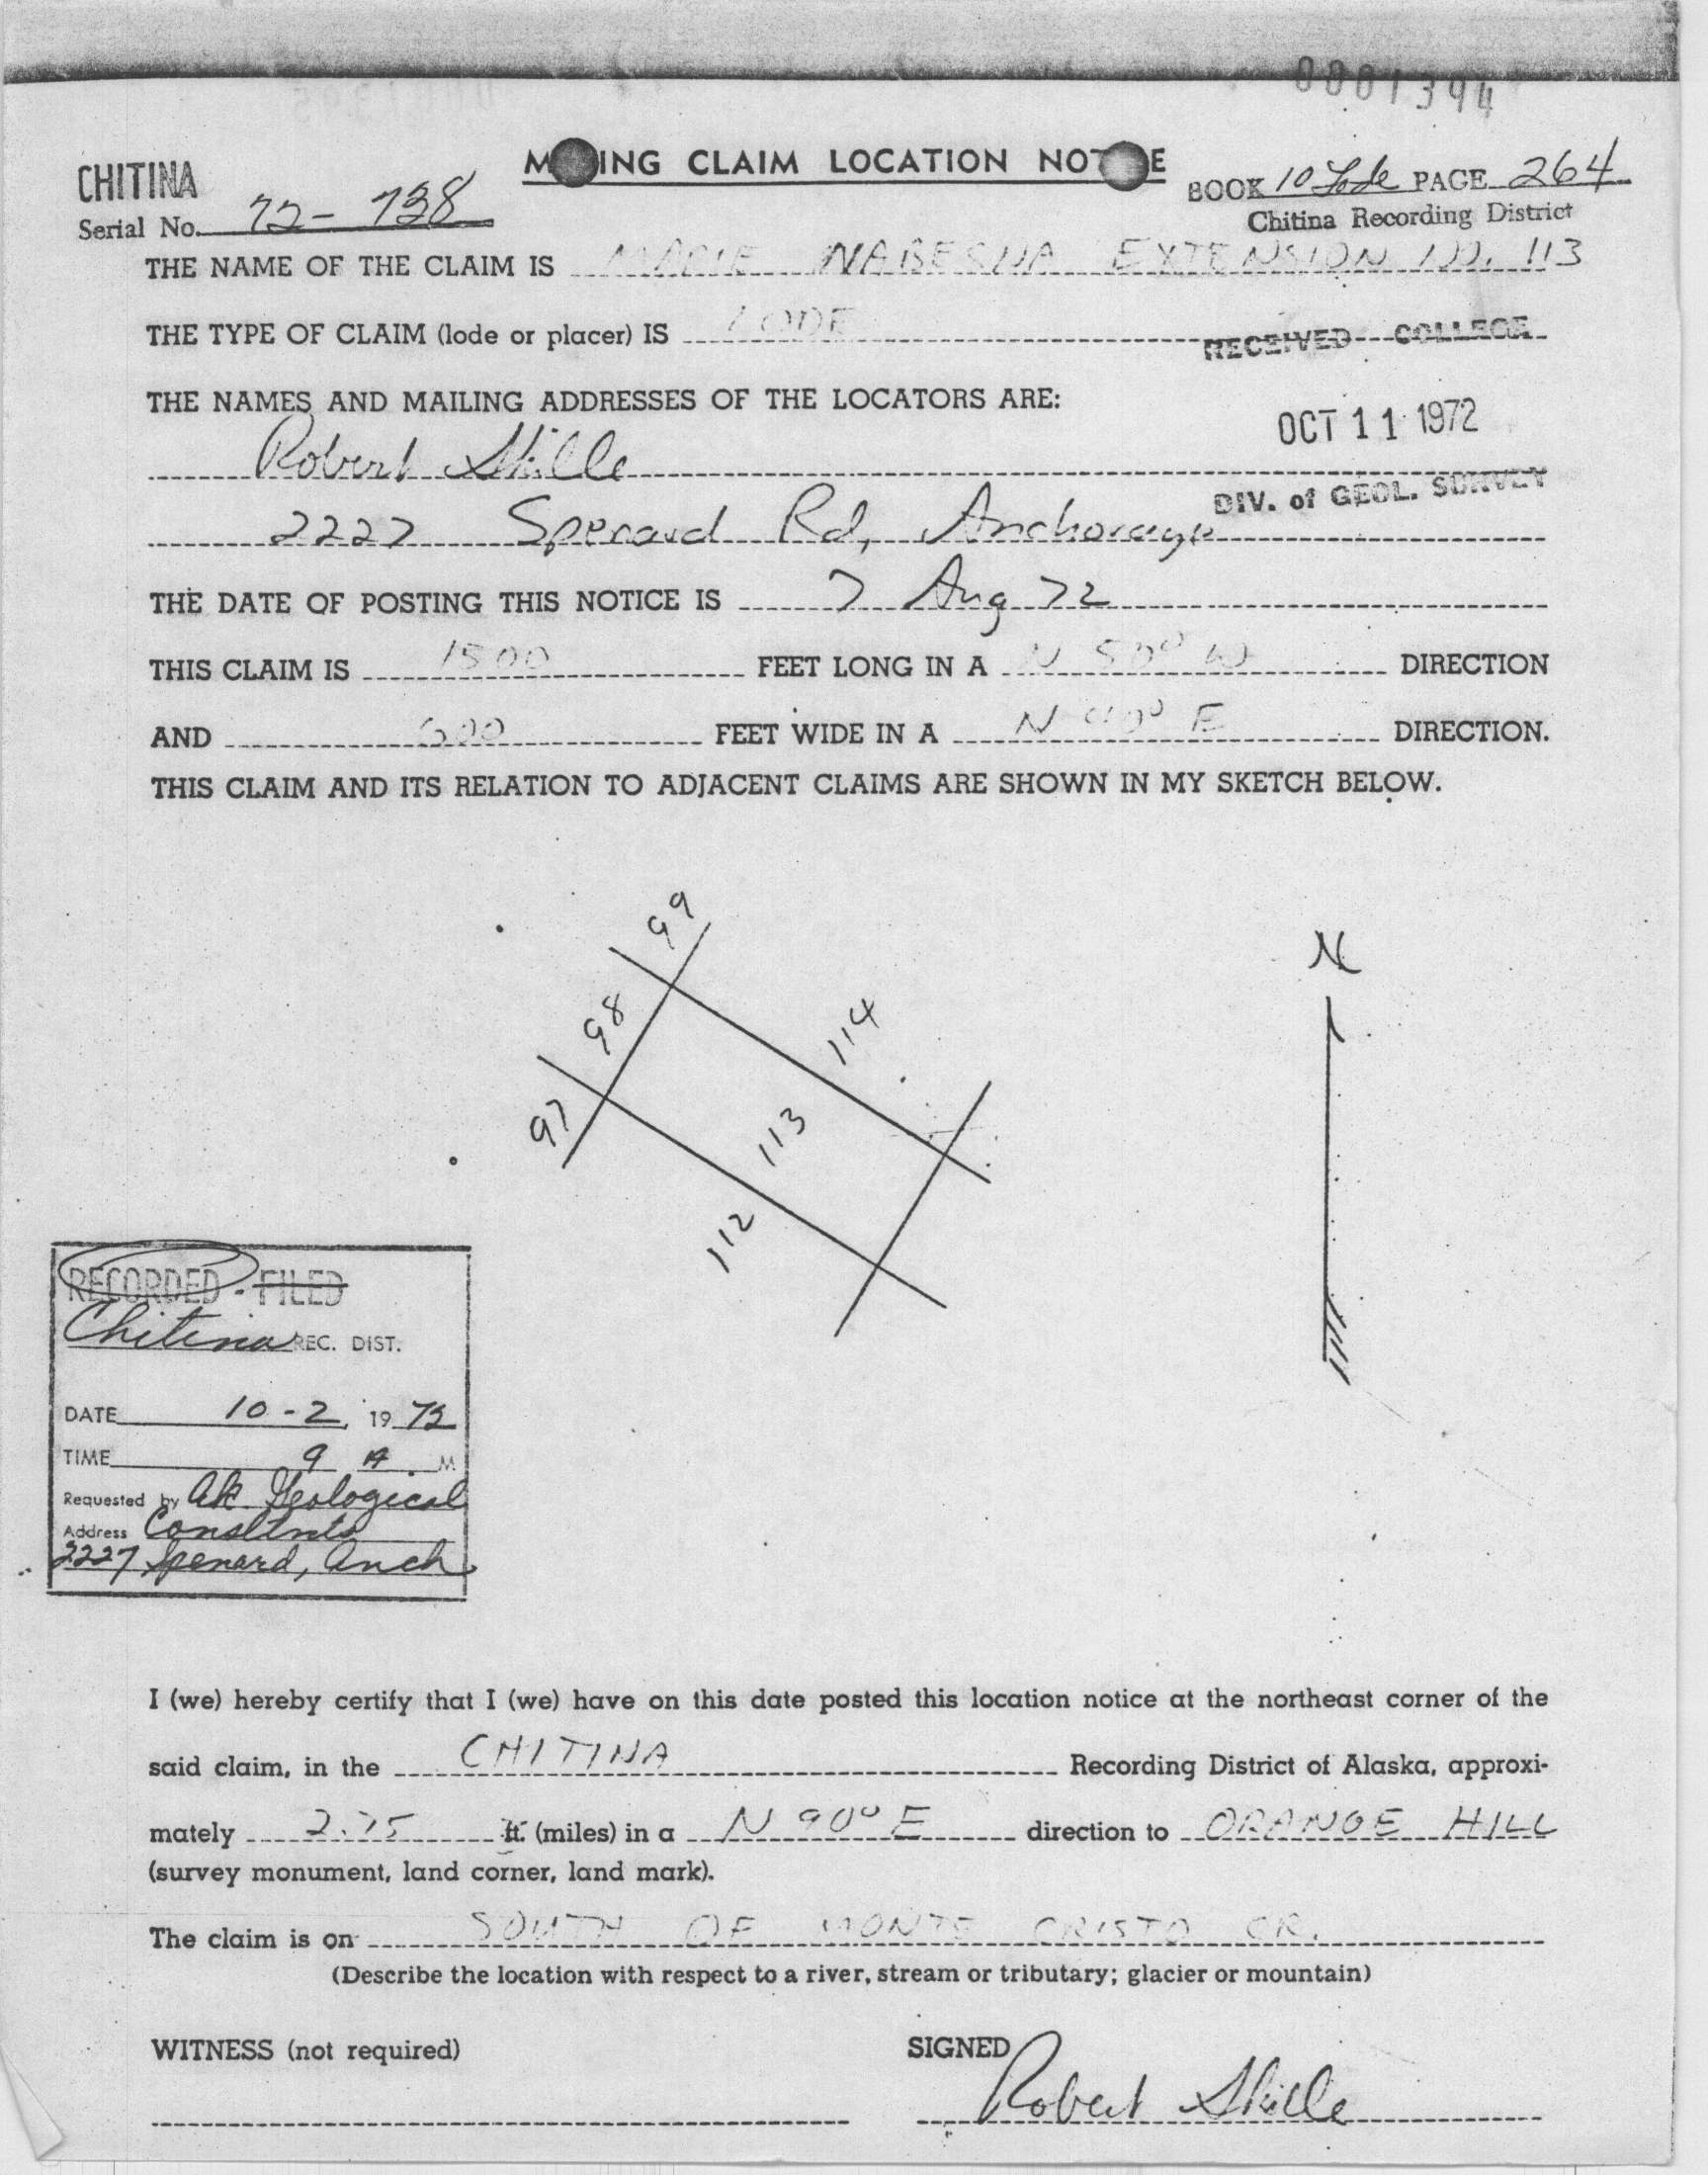 0001394
CHITINA
MINING CLAIM LOCATION NOTICE
BOOK 10 Lode PAGE 264
Serial No. 72-738
Chitina Recording District
THE NAME OF THE CLAIM IS NABESNA EXTENSION NO. 113
THE TYPE OF CLAIM (lode or placer) IS LODE
RECEIVED COLLEGE
THE NAMES AND MAILING ADDRESSES OF THE LOCATORS ARE:
OCT 11 1972
Robert Skille
DIV. of GEOL. SURVEY
2227 Spenard Rd, Anchorage
THE DATE OF POSTING THIS NOTICE IS 7 Aug 72
THIS CLAIM IS 1500 FEET LONG IN A N 50° W DIRECTION
AND 600 FEET WIDE IN A N 40° E DIRECTION.
THIS CLAIM AND ITS RELATION TO ADJACENT CLAIMS ARE SHOWN IN MY SKETCH BELOW.
99
N
98
114
97
113
112
RECORDED - FILED
Chitina REC. DIST.
DATE 10-2, 1972
TIME 9 A. M
Requested by Ak Geological
Address
2227 Spenard, Anch
I (we) hereby certify that I (we) have on this date posted this location notice at the northeast corner of the
said claim, in the CHITINA Recording District of Alaska, approxi-
mately 2.75 ft. (miles) in a N 90° E direction to ORANGE HILL
(survey monument, land corner, land mark).
The claim is on SOUTH OF MONTE CRISTO CR.
(Describe the location with respect to a river, stream or tributary; glacier or mountain)
WITNESS (not required)
SIGNED
Robert Skille